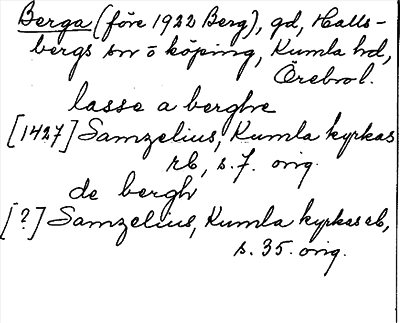 Berga (före 1922 Berg), gd, Halls-
bergs sn o köping, Kumla hd,
Örebro l.
lasse a berghe
[1427] Samzelius, Kumla kyrkas
rb, s. 7. orig.
de bergh
[?] Samzelius, Kumla kyrkas rb,
s. 35. orig.